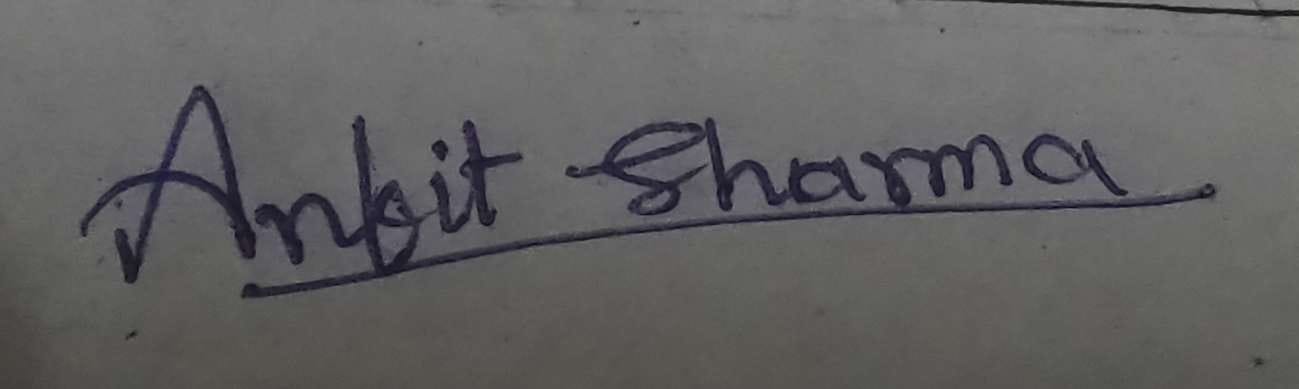 Ankit Sharma